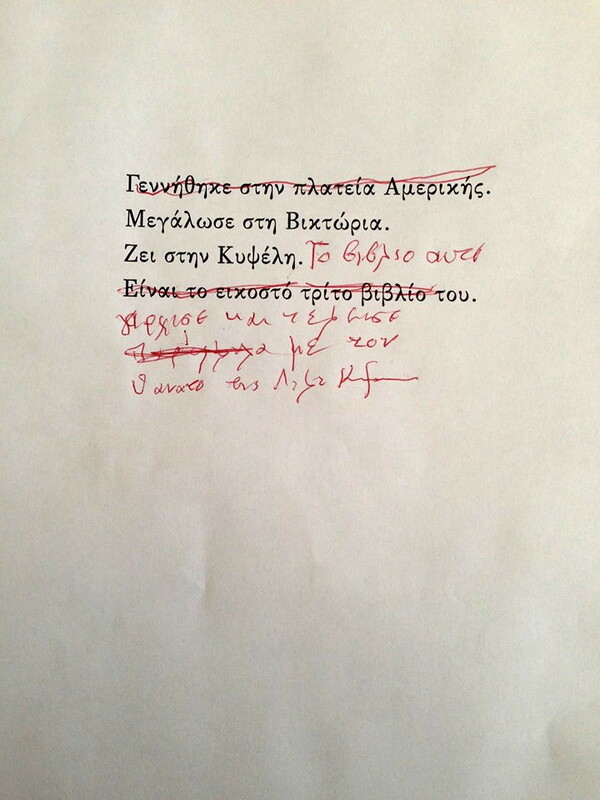 Γεννήθηκε στην πλατεία Αμερικής.
Μεγάλωσε στη Βικτώρια.
Ζει στην Κυψέλη. Το βιβλιο αυτο
Είναι το εικοστό τρίτο βιβλίο του.
αρχισε και τελειωσε
με τον
θανατο της